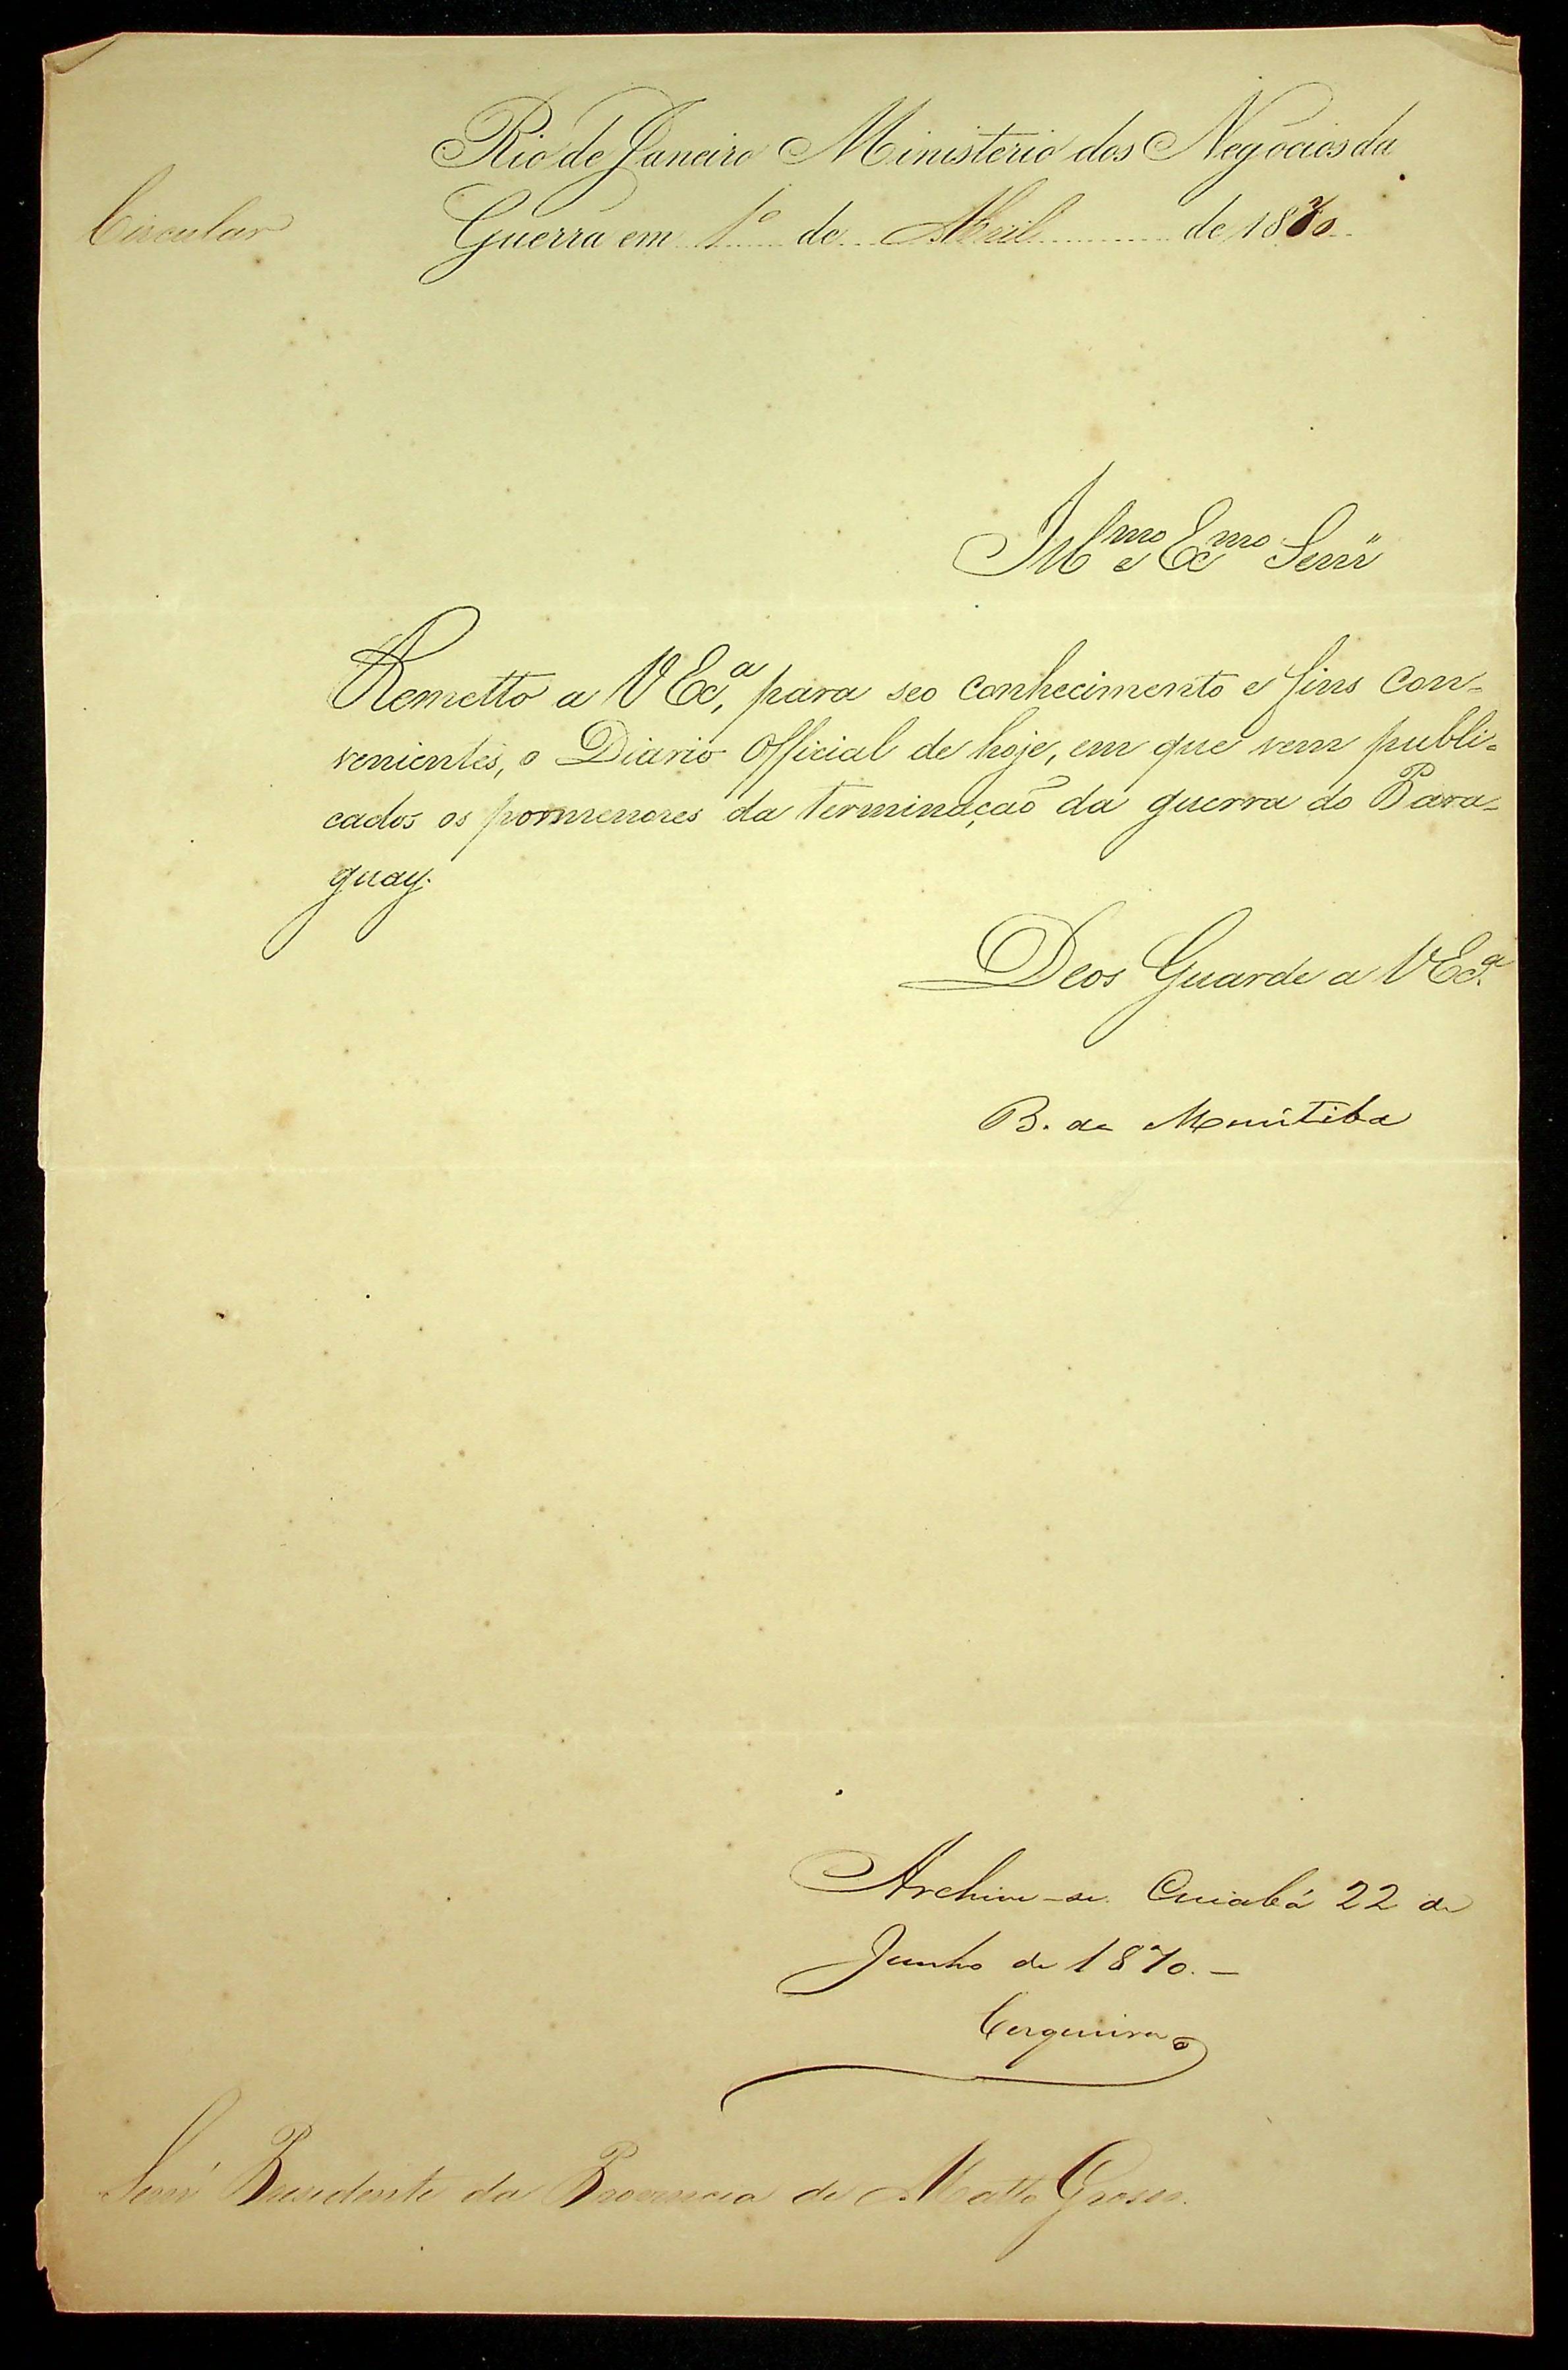 Rio de Janeiro Ministerio dos Negocios da
Circular
Guerra em 1º de Abril de 1870
Illmo e Exmo Senr
Remetto a V Exa, para seo conhecimento e fins con-
venientes, o Diario Official de hoje, em que vem publi-
cados os pormenores da terminação da guerra do Para-
guay.
Deos Guarde a V Exa.
B. de Muritiba
Archive-se. Cuiabá 22 de
Junho de 1870.—
Cerqueira
Senr Presidente da Provincia de Matto Grosso.